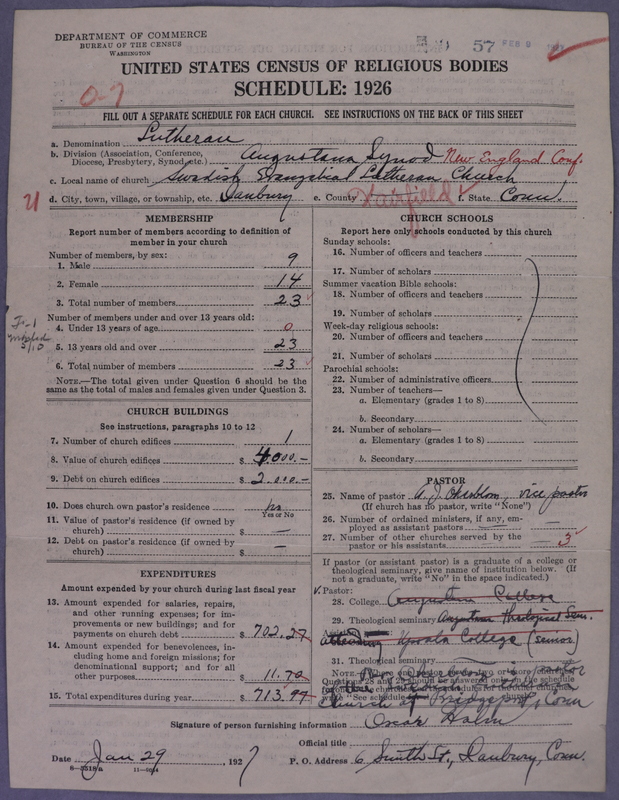 DEPARTMENT OF COMMERCE
BUREAU OF THE CENSUS
WASHINGTON
57 FEB 9
UNITED STATES CENSUS OF RELIGIOUS BODIES
SCHEDULE: 1926
0-7
FILL OUT A SEPARATE SCHEDULE FOR EACH CHURCH. SEE INSTRUCTIONS ON THE BACK OF THIS SHEET
a. Denomination Lutheran
b. Division (Association, Conference, Diocese, Presbytery, Synod, etc.) Augustana Synod New England Conf.
c. Local name of church Swedish Evangelical Lutheran Church
d. City, town, village, or township, etc. Danbury e. County Fairfield f. State Conn.
21
MEMBERSHIP
Report number of members according to definition of
member in your church
Number of members, by sex:
1. Male 9
2. Female 14
3. Total number of members 23
Number of members under and over 13 years old:
4. Under 13 years of age 0
5. 13 years old and over 23
6. Total number of members 23
NOTE.—The total given under Question 6 should be the
same as the total of males and females given under Question 3.
CHURCH BUILDINGS
See instructions, paragraphs 10 to 12
7. Number of church edifices 1
8. Value of church edifices $ 4000.—
9. Debt on church edifices $ 2.000.—
10. Does church own pastor's residence? no
Yes or No
11. Value of pastor's residence (if owned by
church) $ —
12. Debt on pastor's residence (if owned by
church) $ —
EXPENDITURES
Amount expended by your church during last fiscal year
13. Amount expended for salaries, repairs,
and other running expenses; for im-
provements or new buildings; and for
payments on church debt $ 702.27
14. Amount expended for benevolences, in-
cluding home and foreign missions; for
denominational support; and for all
other purposes $ 11.70
15. Total expenditures during year $ 713.97
CHURCH SCHOOLS
Report here only schools conducted by this church
Sunday schools:
16. Number of officers and teachers
17. Number of scholars
Summer vacation Bible schools:
18. Number of officers and teachers
19. Number of scholars
Week-day religious schools:
20. Number of officers and teachers
21. Number of scholars
Parochial schools:
22. Number of administrative officers
23. Number of teachers—
a. Elementary (grades 1 to 8)
b. Secondary
24. Number of scholars—
a. Elementary (grades 1 to 8)
b. Secondary
PASTOR
25. Name of pastor A. J. vice pastor
(If church has no pastor, write "None")
26. Number of ordained ministers, if any, em-
ployed as assistant pastors —
27. Number of other churches served by the
pastor or his assistants 3
If pastor (or assistant pastor) is a graduate of a college or
theological seminary, give name of institution below. (If
not a graduate, write "No" in the space indicated.)
Pastor:
28. College Augustana College
29. Theological seminary Augustana Theological Sem.
attending Upsala College (senior)
31. Theological seminary
pastor
Church at Bridgeport, Conn
Signature of person furnishing information Oscar Holm
Official title
Date Jan 29, 1927 P. O. Address 6 Smith St., Danbury, Conn.
6-5518a 11-9014